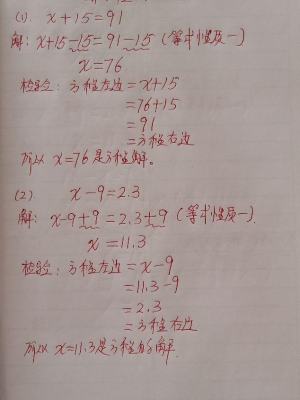 (1). x+15=91
解: x+15-15=91-15 (等式性质一)
x=76
检验: 方程左边=x+15
=76+15
=91
=方程右边
所以 x=76是方程解。
(2). x-9=2.3
解: x-9+9=2.3+9 (等式性质一)
x=11.3
检验: 方程左边=x-9
=11.3-9
=2.3
=方程右边
所以 x=11.3是方程的解.